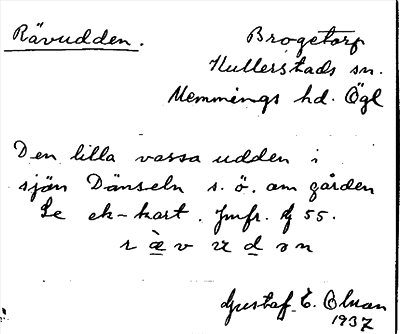 Rävudden.
Brogetorp
Kullerstads sn.
Memmings hd. Ögl
Den lilla vassa udden i
sjön Dänseln s. ö. om gården
Se ek-kart. Jmfr. 55.
Gustaf E. Olson
1937